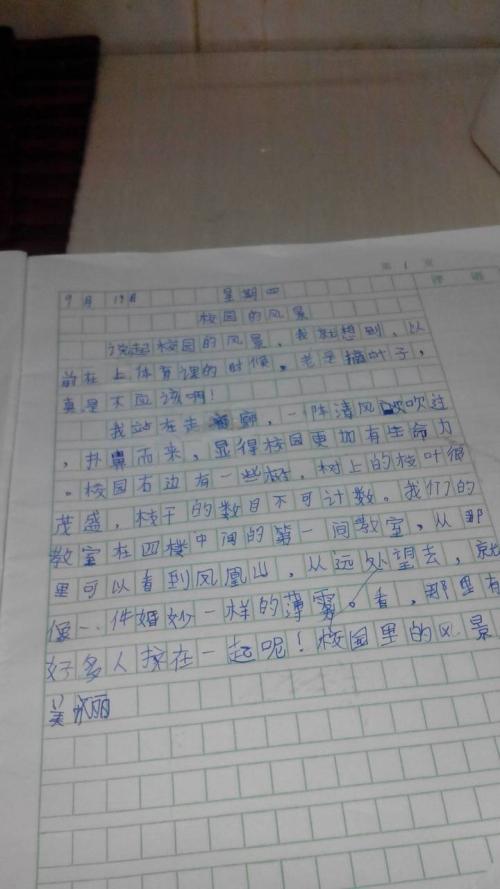 第 1 页
评语
9月 19日 星期四
校园的风景
说起校园的风景，我就想到，以
前在上体育课的时候，老是摘叶子，
真是不应该啊！
我站在走廊，一阵清风吹过
，扑鼻而来，显得校园更加有生命力
。校园右边有一些树，树上的枝叶很
茂盛，枝干的数目不可计数。我们的
教室在四楼中间的第一间教室，从那
里可以看到凤凰山，从远处望去，就
像一件婚纱一样的薄雾。看，那里有
好多人挨在一起呢！校园里的风景
美丽